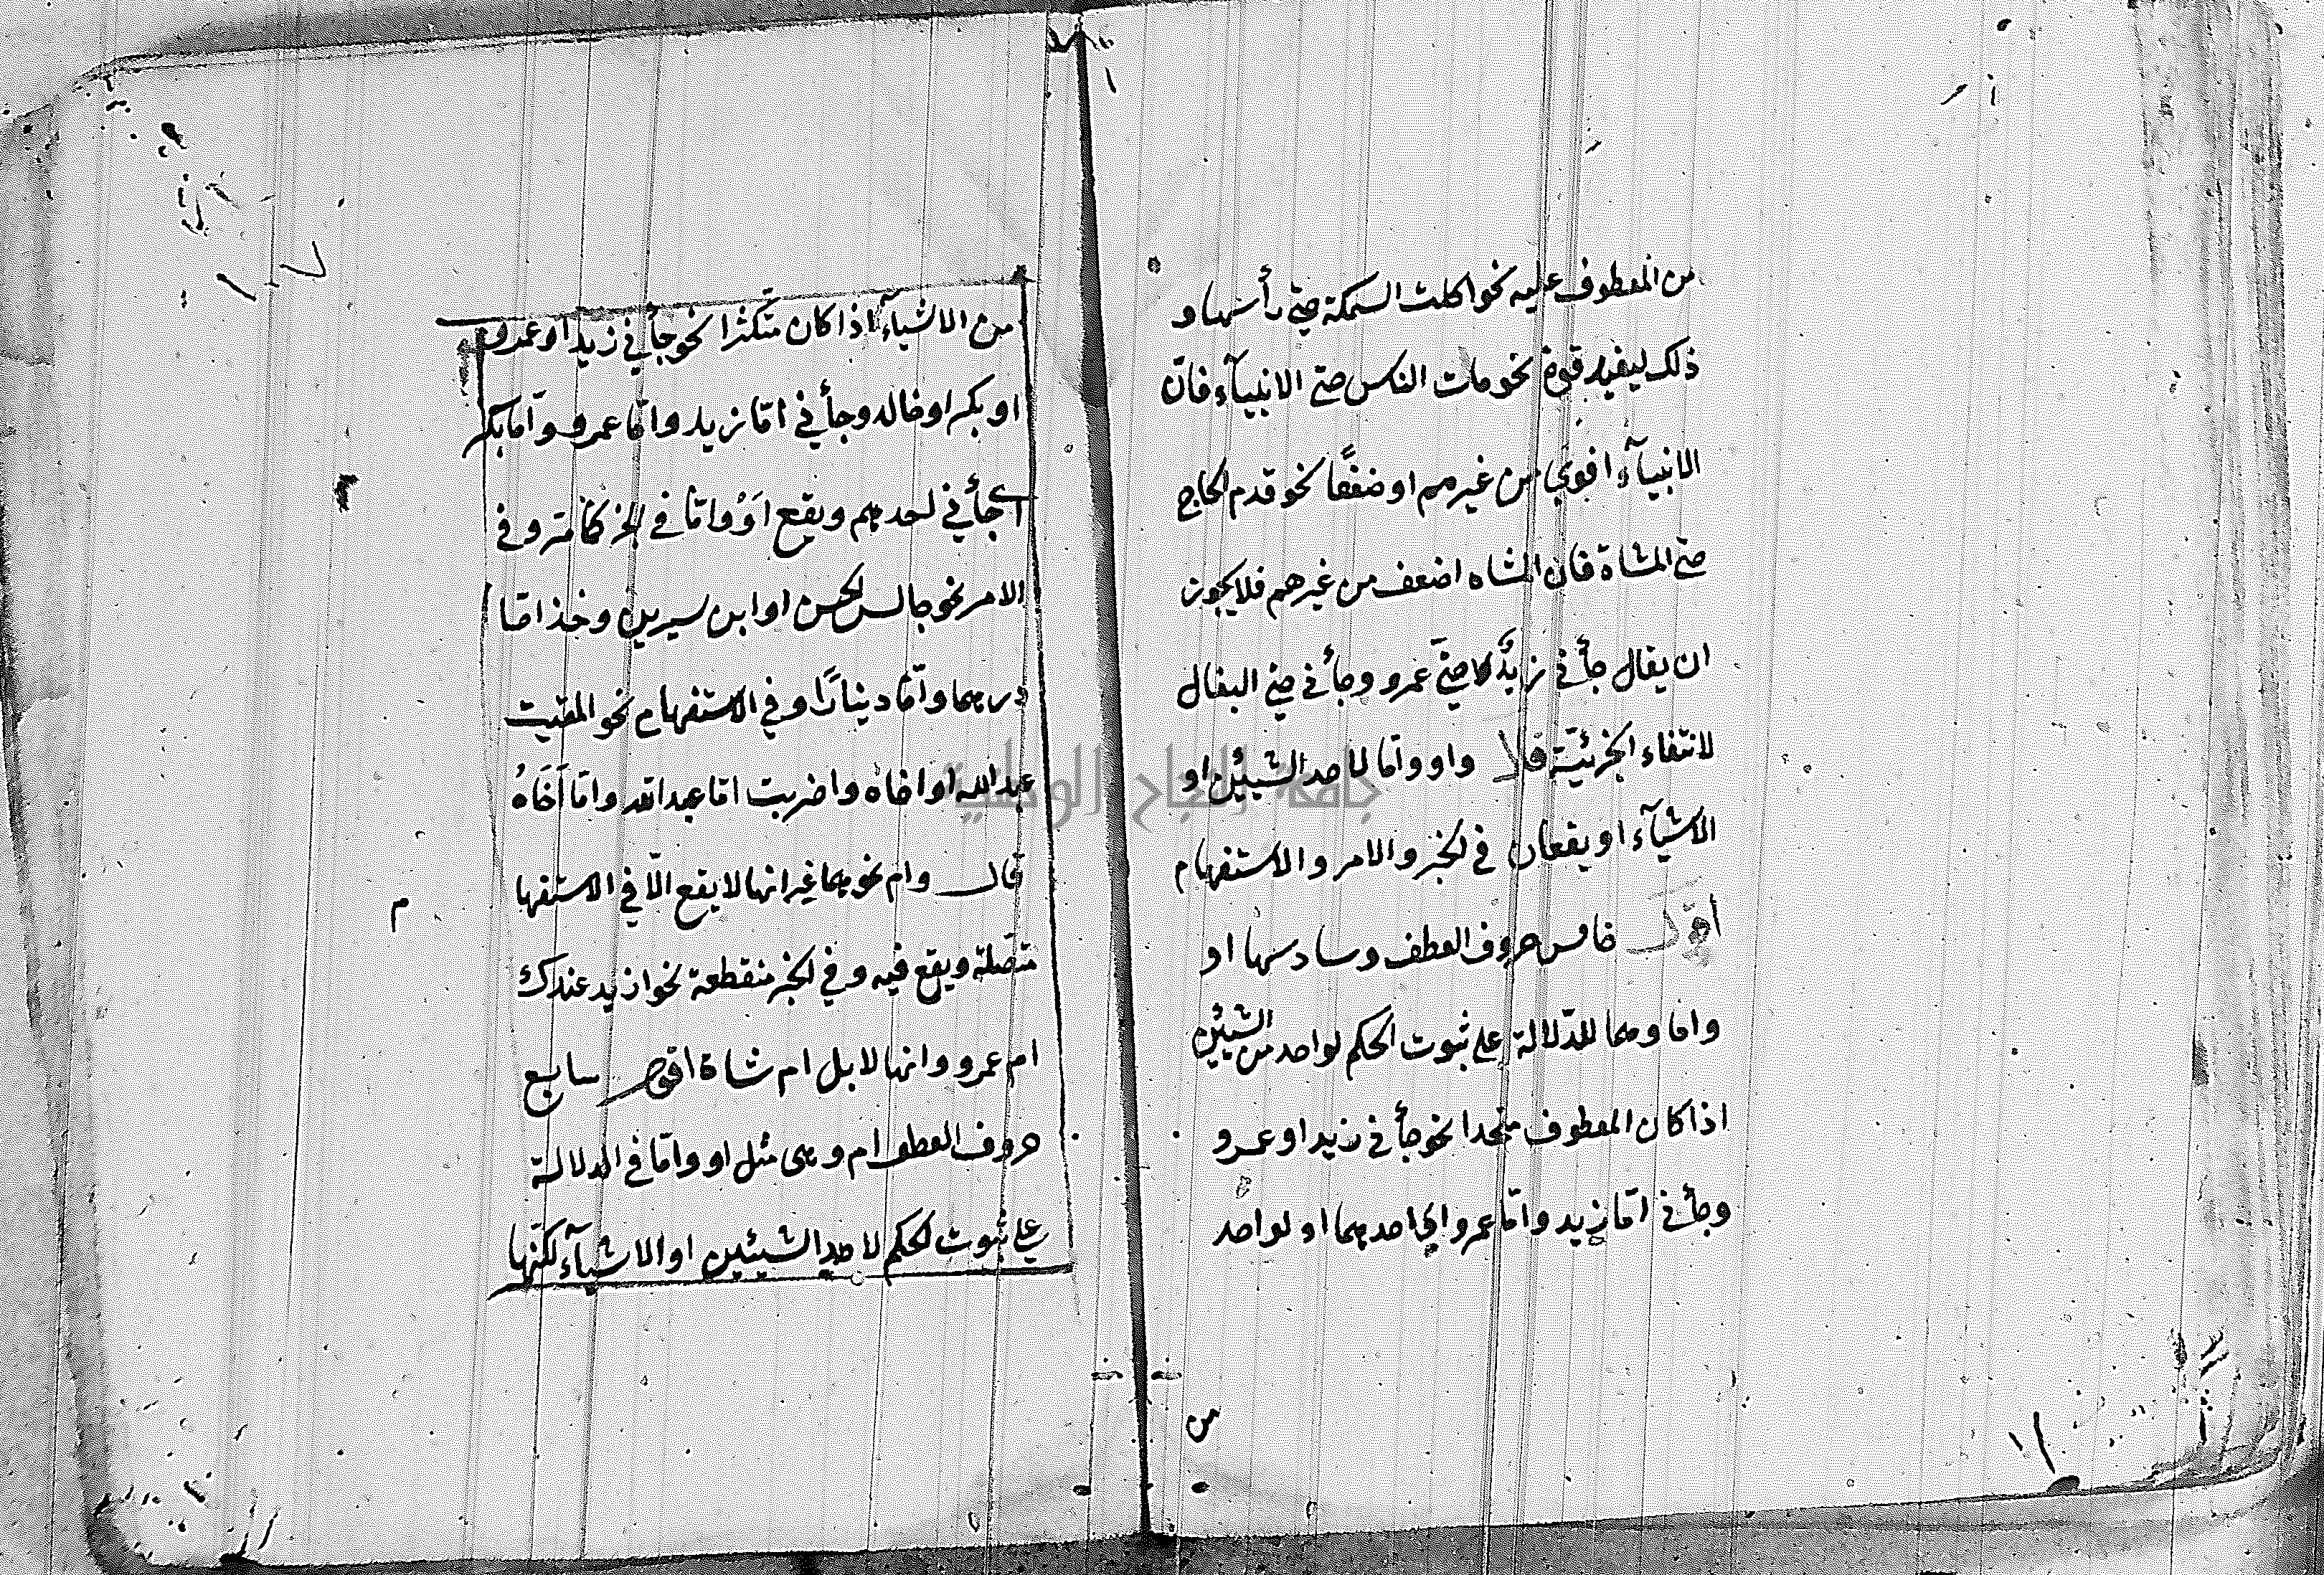 من المعطوف عليه نحو اكلت السمكة حتى رأسها و
ذلك ليفيد قوة نحو مات الناس حتى الانبيآء فانّ
الانبيآء اقوي من غيرهم او ضعفًا نحو قدم الحاج
حتى المشاة فان المشاه اضعف من غيرهم فلا يجوز
ان يقال جأني زيدٌ حتىّ عمرو وجأني حتى البغال
لانتفاء الجزئيّة قال واو وامّا لاحد الشيئين او
الاشيآء او يقعان في الخبر والامر والاستفهام
أقول خامس حروف العطف وسادسها او
واما وهما للدّلالة على ثبوت الحكم لواحد من الشيئين
اذا كان المعطوف متحدا نحو جأني زيد او عمرو
وجأني امّا زيد وامّا عمرو اي احدهما او لواحد
من
من الاشيآء اذا كان متكثرا نحو جأني زيد او عمرو
او بكر او خالد وجأني امّا زيد وامّا عمرو وامّا بكر
اي جأني احدهم ويقع اَوْ وامّا في الخبر كما مر وفي
الامر نحو جالس الحسن او ابن سيرين وخذ امّا
درهما وامّا دينارًا وفي الاستفهام نحو القيت
عبد الله او اخاه واضربت امّا عبد الله وامّا اَخَاهُ
قال وام نحوهما غير انها لا يقع الّا في الاستفها م
متصّلة ويقع فيه وفي الخبر منقطعة نحو ازيد عندك
ام عمرو وانها لابل ام شاة اقول سابع
حروف العطف ام وهى مثل او وامّا في الدلالة
على ثبوت الحكم لاحد الشيئين او الاشيآء لكنّها
جامعة النجاح الوطنية